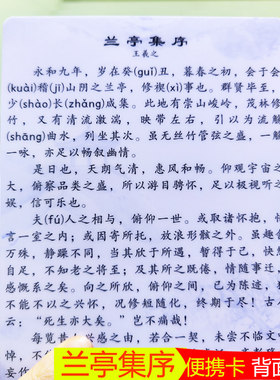 兰亭集序
王羲之
永和九年，岁在癸(guǐ)丑，暮春之初，会于会
(kuài)稽(jī)山阴之兰亭，修禊(xì)事也。群贤毕至，
少(shào)长(zhǎng)咸集。此地有崇山峻岭，茂林修
竹，又有清流激湍，映带左右，引以为流觞
(shāng)曲水，列坐其次。虽无丝竹管弦之盛，一觞
一咏，亦足以畅叙幽情。
是日也，天朗气清，惠风和畅。仰观宇宙之
大，俯察品类之盛，所以游目骋怀，足以极视听之
娱，信可乐也。
夫(fú)人之相与，俯仰一世。或取诸怀抱，悟
言一室之内；或因寄所托，放浪形骸之外。虽趣
万殊，静躁不同，当其欣于所遇，暂得于己，快然
自足，不知老之将至；及其所之既倦，情随事迁，
感慨系之矣。向之所欣，俯仰之间，已为陈迹，犹
不能不以之兴怀，况修短随化，终期于尽！古人
云："死生亦大矣。"岂不痛哉！
每览昔人兴感之由，若合一契，未尝不临文嗟
悼，不
兰亭集序 便携卡 背面